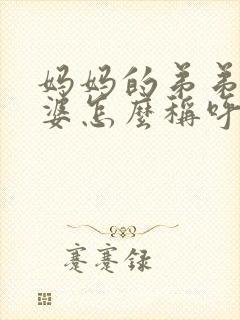 妈妈的弟弟
婆怎麼稱呼
蹇蹇録